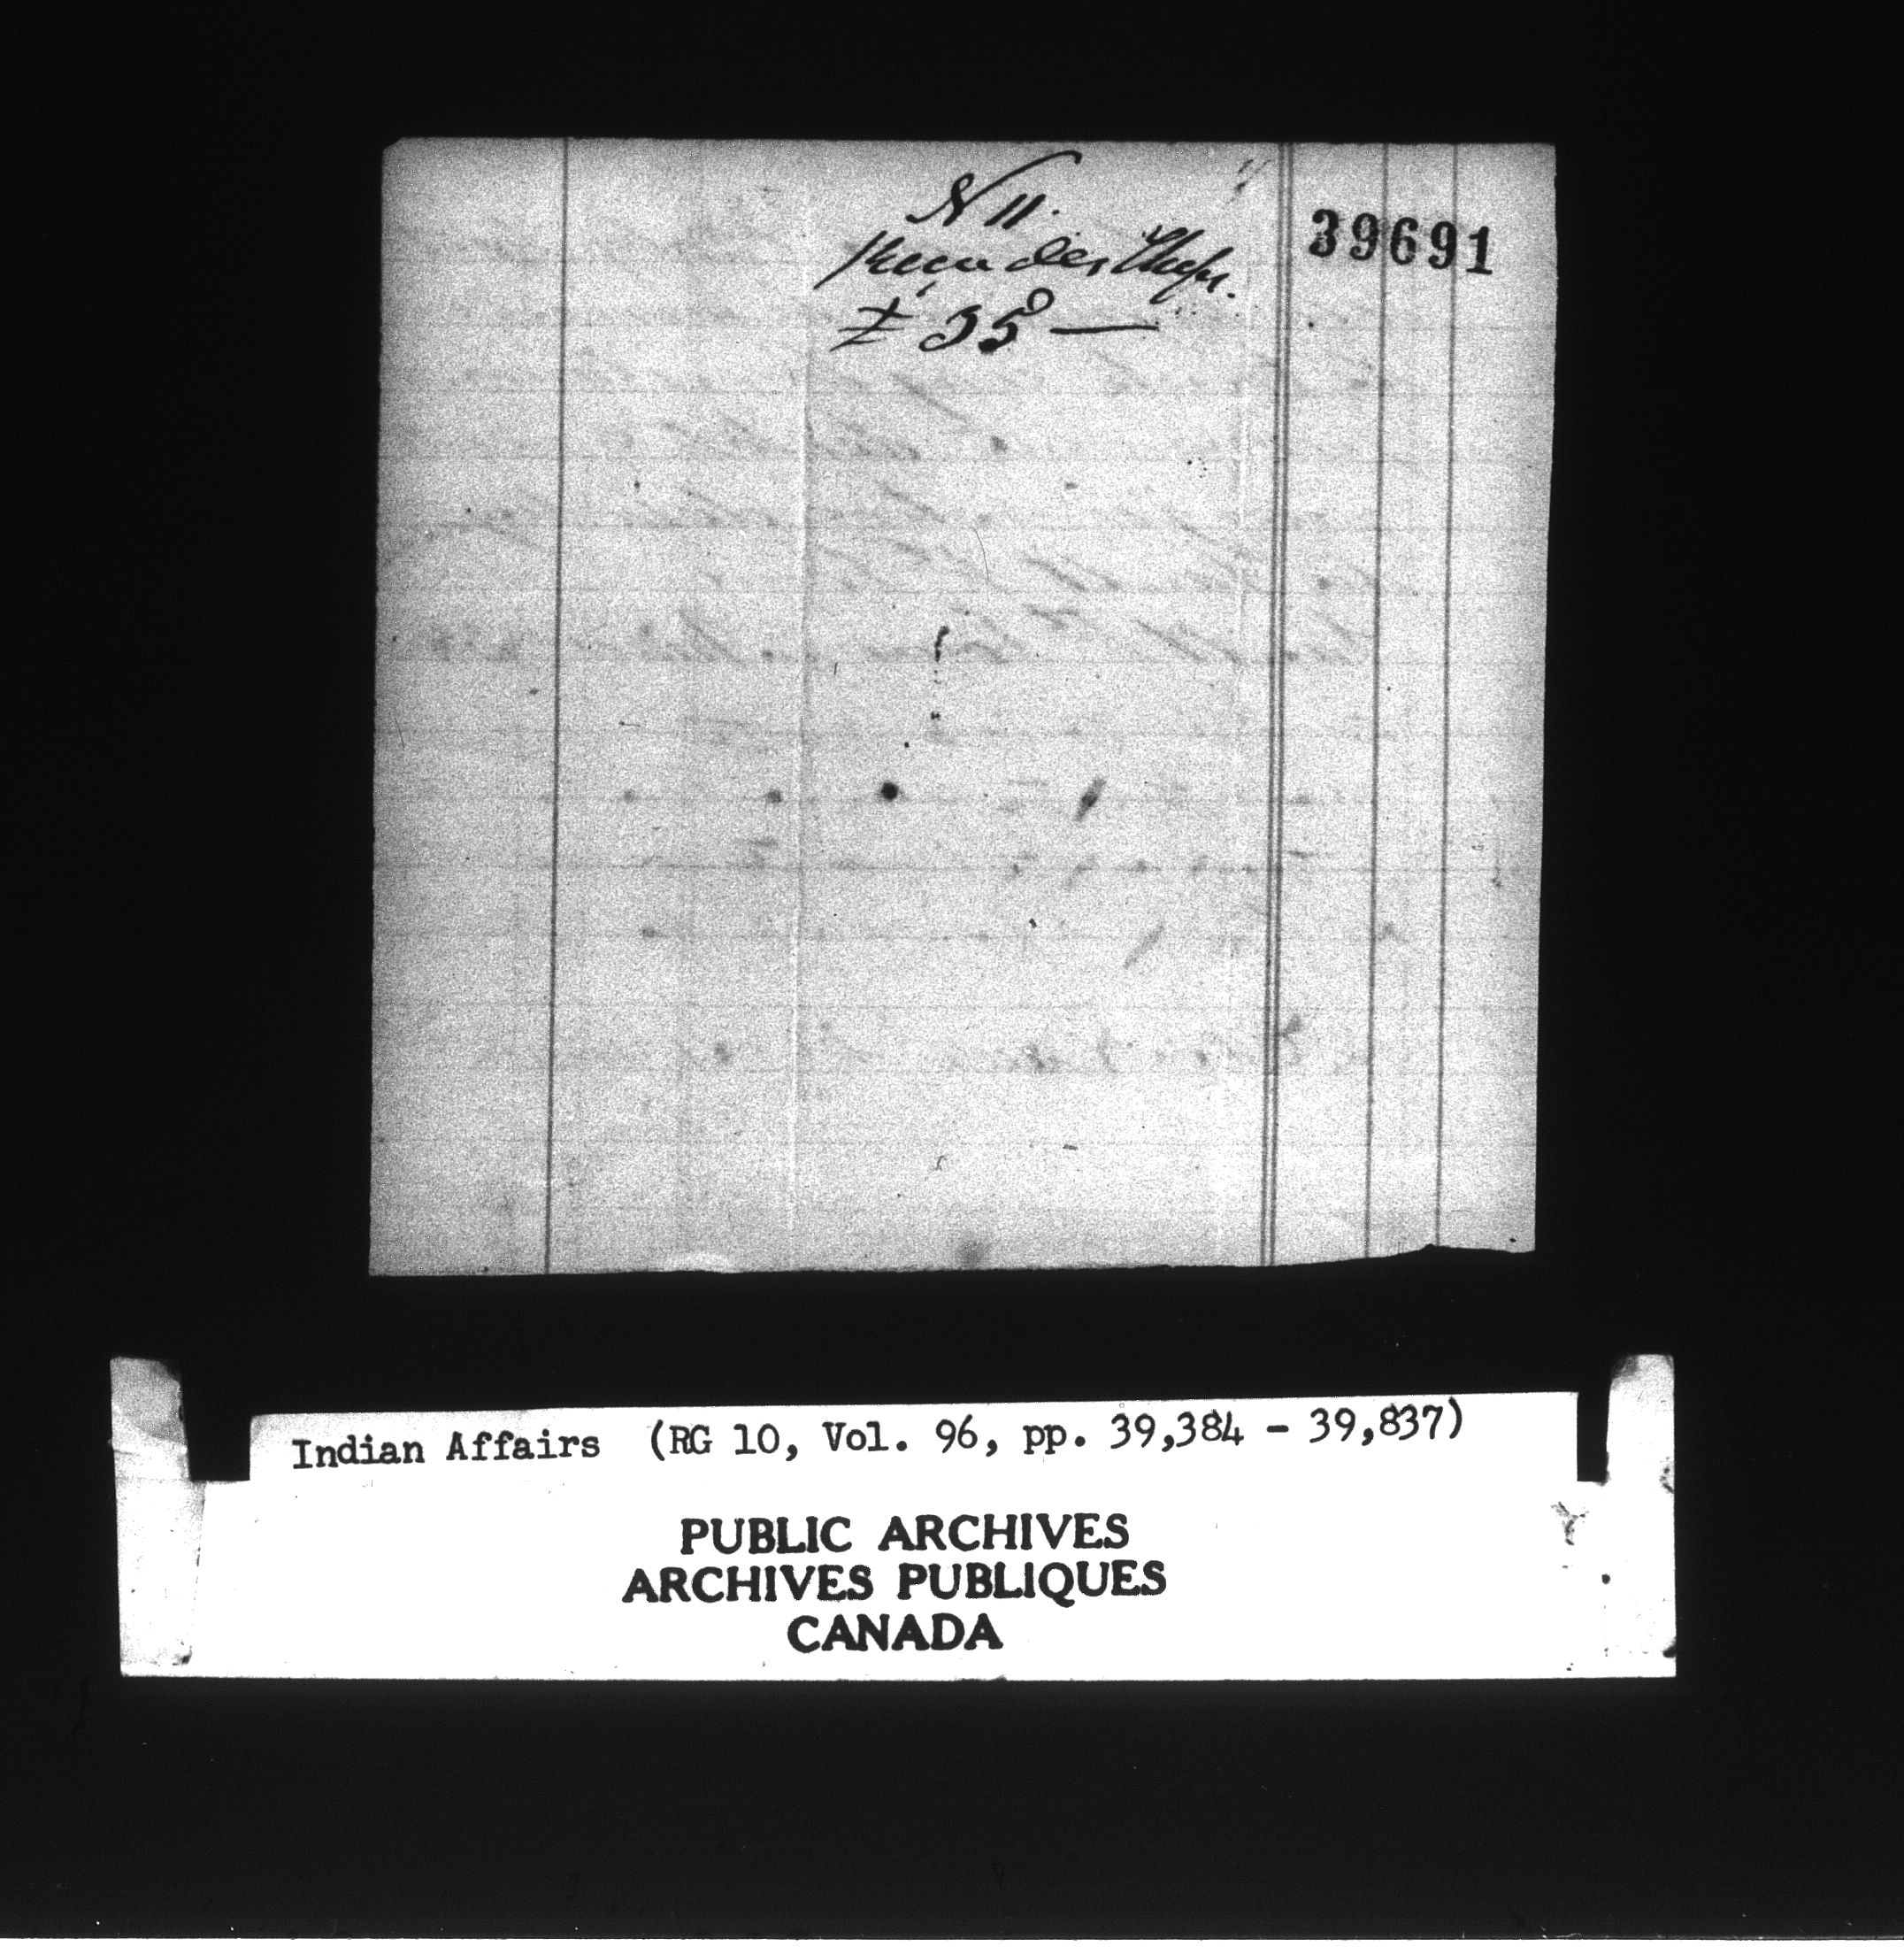 N 11.
39691
Reçu des Chefs.
£ 35 —
Indian Affairs (RG 10, Vol. 96, pp. 39,384 - 39,837)
PUBLIC ARCHIVES
ARCHIVES PUBLIQUES
CANADA